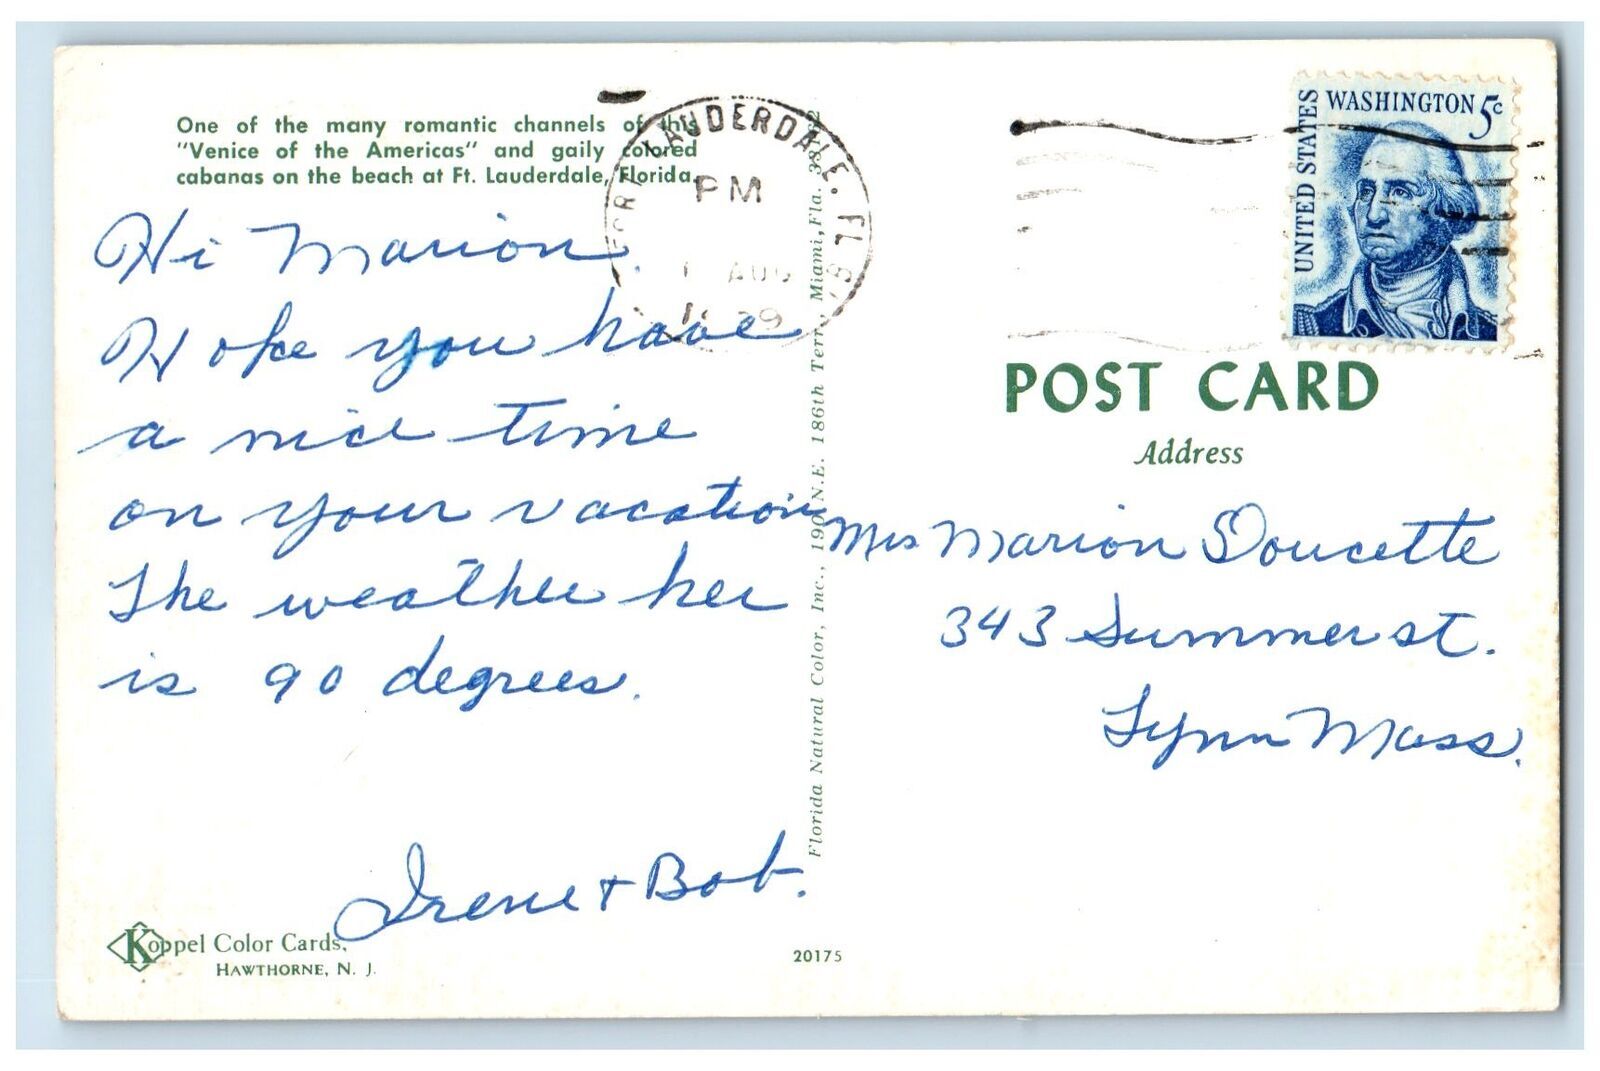 One of the many romantic channels of this
"Venice of the Americas" and gaily colored
cabanas on the beach at Ft. Lauderdale, Florida.
Hi Marion.
Hope you have
a nice time
on your vacation
The weather her
is 90 degrees.
Irene + Bob.
Koppel Color Cards,
HAWTHORNE, N. J.
20175
Florida Natural Color, Inc., 190 N.E. 186th Terr., Miami, Fla.
FORT LAUDERDALE, FL
PM
AUG
UNITED STATES
WASHINGTON 5c
POST CARD
Address
Mrs Marion Doucette
343 Summer st.
Lynn Mass.